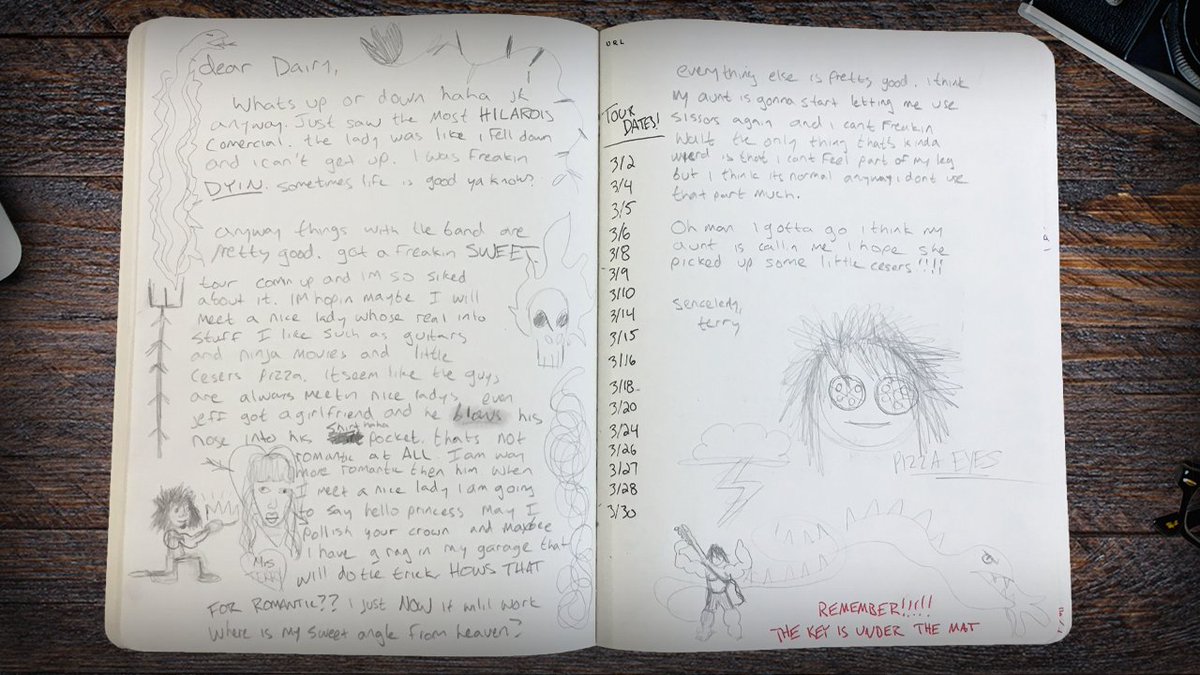 dear Dairy,
Whats up or down haha jk
anyway. Just saw the most HILAROIS
Comercial. the lady was like i fell down
and i can't get up. I was freakin
DYIN. sometimes life is good ya know?
anyway things with the band are
pretty good. got a freakin SWEET
tour comin up and im so siked
about it. IM hopin maybe I will
meet a nice lady whose real into
stuff I like such as guitars
and ninja movies and little
Cesers pizza. it seem like the guys
are always meetin nice ladys even
jeff got a girlfriend and he blows his
nose into his shirt haha pocket. thats not
romantic at ALL. I am way
more romantic then him when
I meet a nice lady I am going
to say hello princess may I
pollish your crown and maybee
i have a rag in my garage that
will do the trick HOWS THAT
FOR ROMANTIC?? i just NOW it will work
Where is my sweet angle from heaven?
Mrs
TERRY
URL
TOUR
DATES!
3/2
3/4
3/5
3/6
3/8
3/9
3/10
3/14
3/15
3/16
3/18
3/20
3/24
3/26
3/27
3/28
3/30
everything else is pretty good. i think
my aunt is gonna start letting me use
sissors again and i cant freakin
wait the only thing that's kinda
wierd is that i cant feel part of my leg
but i think its normal anyway i dont use
that part much.
Oh man i gotta go i think my
aunt is callin me i hope she
picked up some little cesers!!!!
sencelery,
terry
PIZZA EYES
REMEMBER!!!!!
THE KEY IS UNDER THE MAT